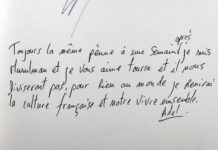 après
Toujours la même peine à une semaine je suis
Musulman et je vous aime tousse et il nous
diviseront pas, pour rien au monde je renirai
la culture française et notre vivre ensemble.
Adel.